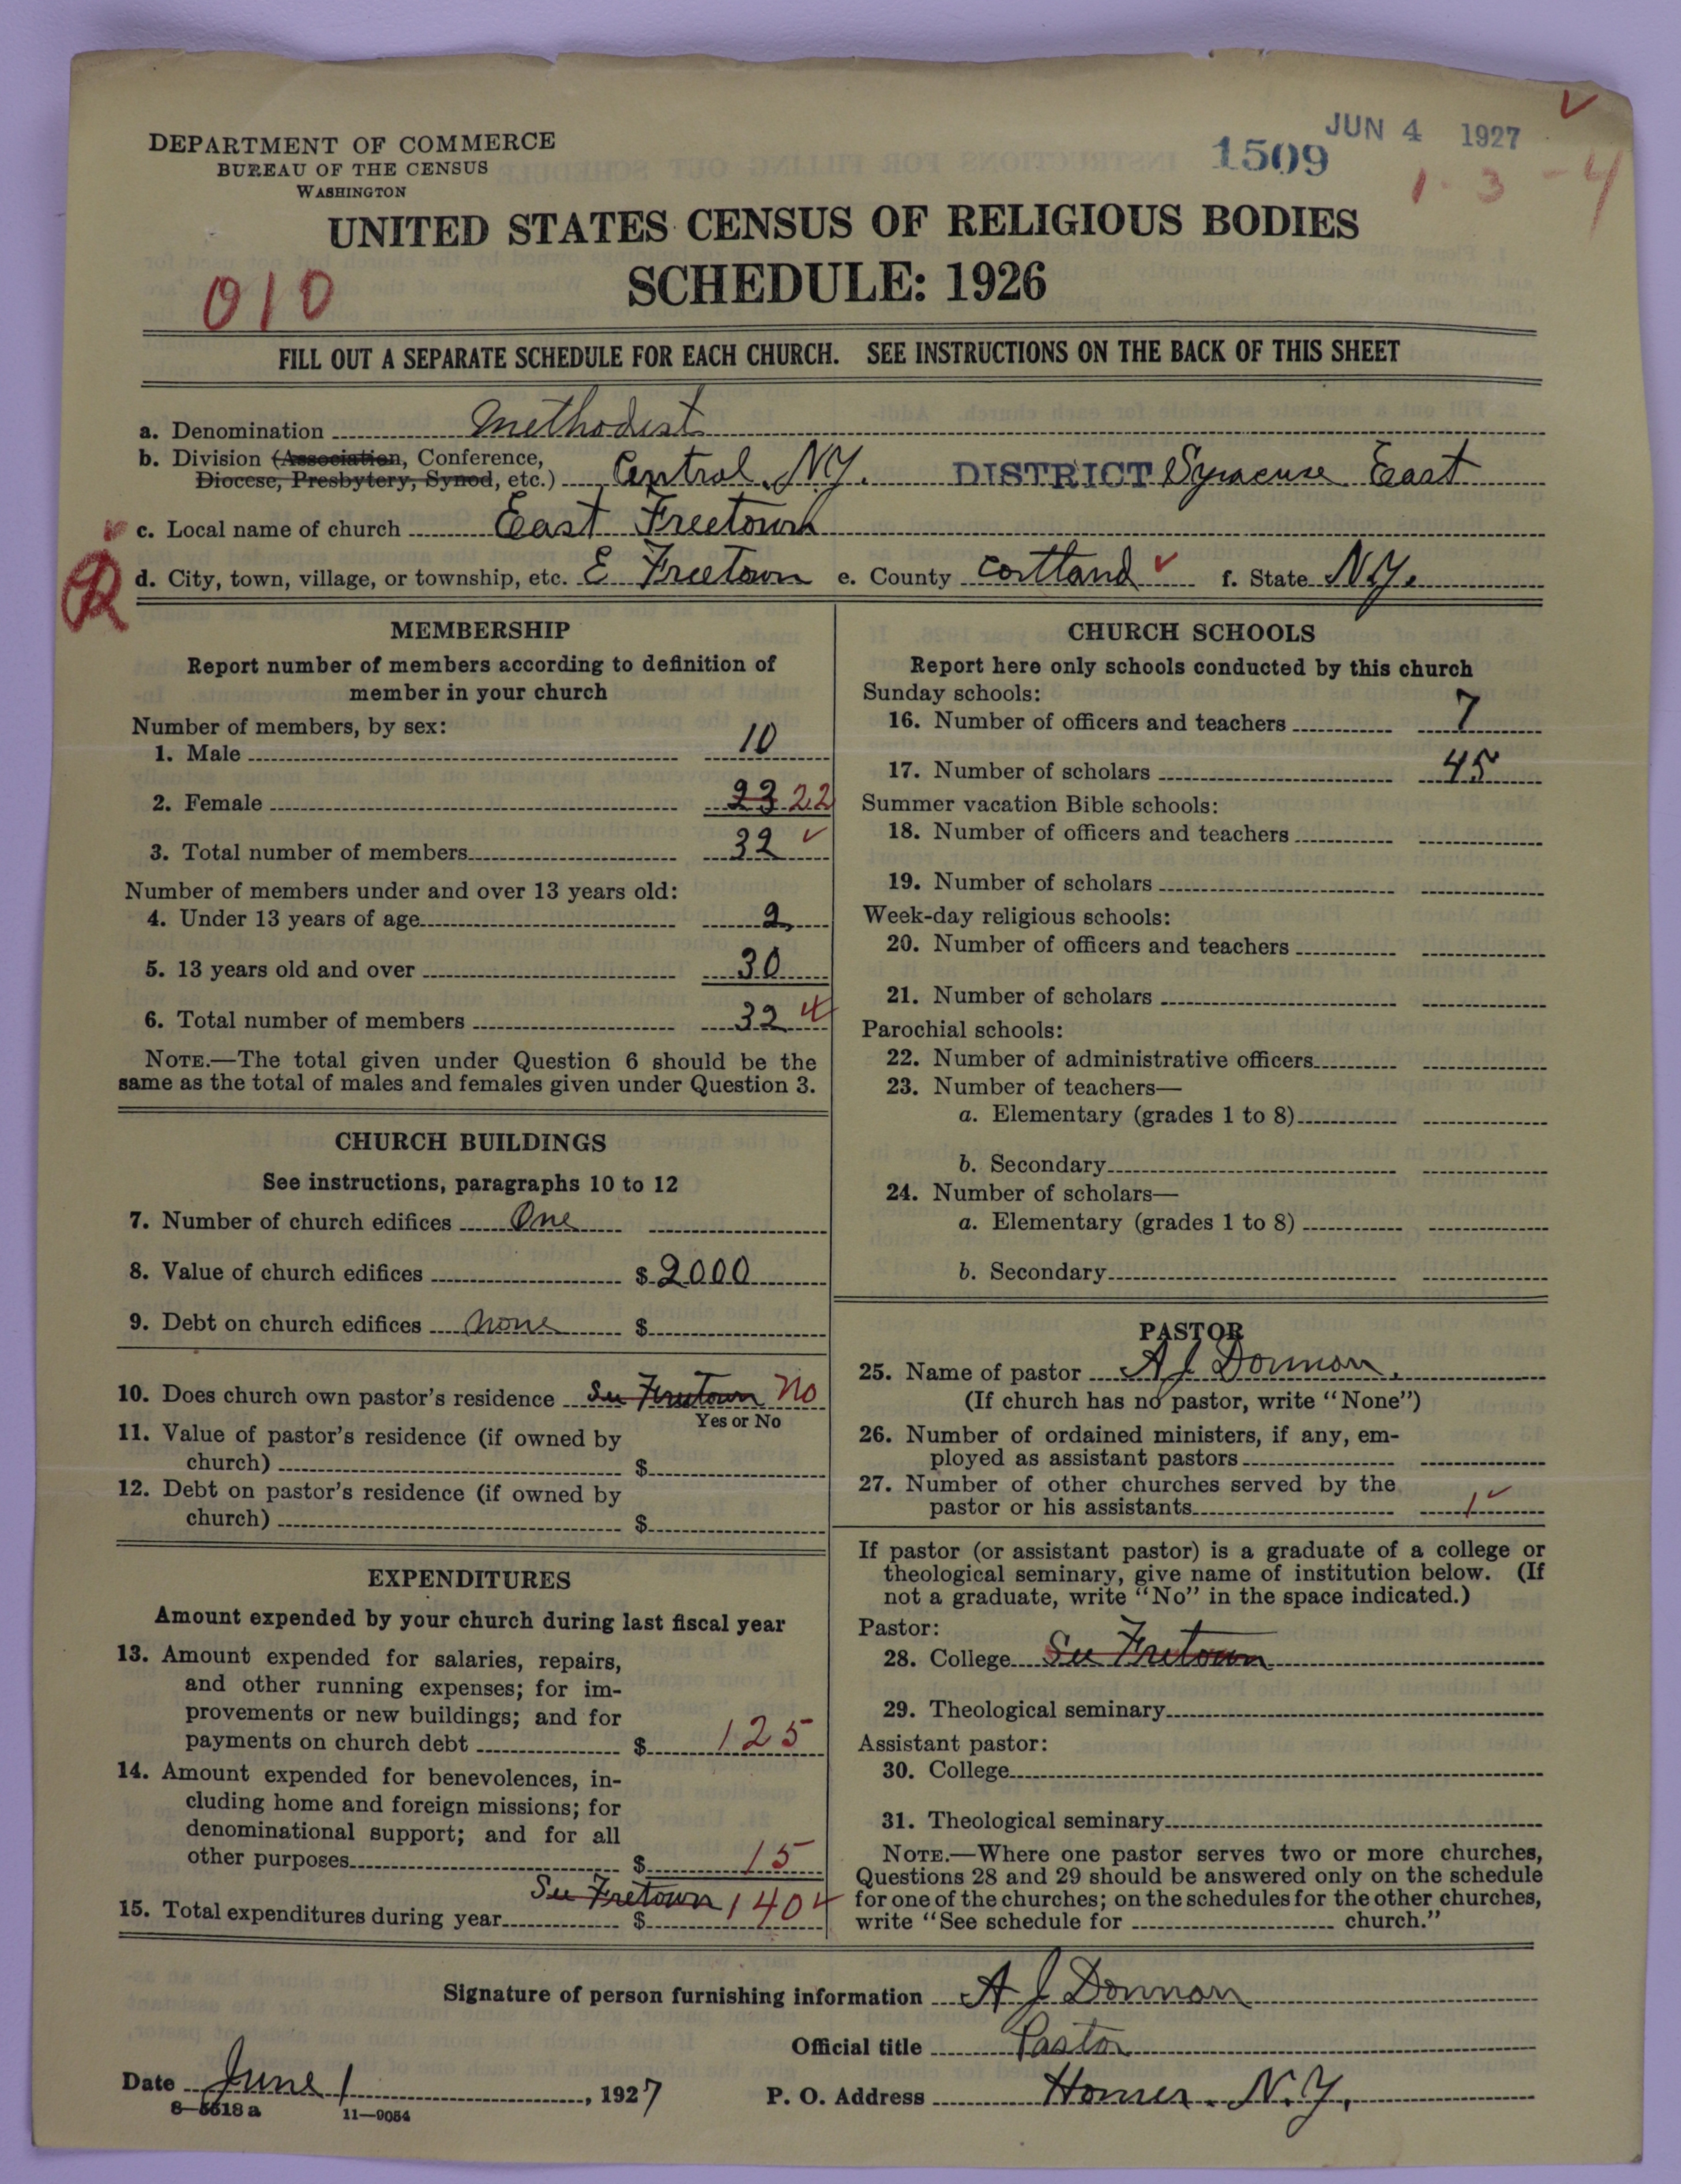 DEPARTMENT OF COMMERCE
BUREAU OF THE CENSUS
WASHINGTON
JUN 4 1927
1509
1-3-4
UNITED STATES CENSUS OF RELIGIOUS BODIES
SCHEDULE: 1926
010
FILL OUT A SEPARATE SCHEDULE FOR EACH CHURCH. SEE INSTRUCTIONS ON THE BACK OF THIS SHEET
a. Denomination Methodist
b. Division (Association, Conference,
Diocese, Presbytery, Synod, etc.) Central N.Y. DISTRICT Syracuse East
c. Local name of church East Freetown
d. City, town, village, or township, etc. E Freetown e. County Cortland f. State N.Y.
MEMBERSHIP
Report number of members according to definition of
member in your church
Number of members, by sex:
1. Male 10
2. Female 23 22
3. Total number of members 32
Number of members under and over 13 years old:
4. Under 13 years of age 2
5. 13 years old and over 30
6. Total number of members 32
NOTE.—The total given under Question 6 should be the
same as the total of males and females given under Question 3.
CHURCH BUILDINGS
See instructions, paragraphs 10 to 12
7. Number of church edifices One
8. Value of church edifices $ 2000
9. Debt on church edifices none $
10. Does church own pastor's residence See Freetown no
Yes or No
11. Value of pastor's residence (if owned by
church) $
12. Debt on pastor's residence (if owned by
church) $
EXPENDITURES
Amount expended by your church during last fiscal year
13. Amount expended for salaries, repairs,
and other running expenses; for im-
provements or new buildings; and for
payments on church debt $ 125
14. Amount expended for benevolences, in-
cluding home and foreign missions; for
denominational support; and for all
other purposes $ 15
15. Total expenditures during year See Freetown $ 140
CHURCH SCHOOLS
Report here only schools conducted by this church
Sunday schools:
16. Number of officers and teachers 7
17. Number of scholars 45
Summer vacation Bible schools:
18. Number of officers and teachers
19. Number of scholars
Week-day religious schools:
20. Number of officers and teachers
21. Number of scholars
Parochial schools:
22. Number of administrative officers
23. Number of teachers—
a. Elementary (grades 1 to 8)
b. Secondary
24. Number of scholars—
a. Elementary (grades 1 to 8)
b. Secondary
PASTOR
25. Name of pastor A J Donnan
(If church has no pastor, write "None")
26. Number of ordained ministers, if any, em-
ployed as assistant pastors
27. Number of other churches served by the
pastor or his assistants 1
If pastor (or assistant pastor) is a graduate of a college or
theological seminary, give name of institution below. (If
not a graduate, write "No" in the space indicated.)
Pastor:
28. College See Freetown
29. Theological seminary
Assistant pastor:
30. College
31. Theological seminary
NOTE.—Where one pastor serves two or more churches,
Questions 28 and 29 should be answered only on the schedule
for one of the churches; on the schedules for the other churches,
write "See schedule for church."
Signature of person furnishing information A J Donnan
Official title Pastor
Date June 1, 1927 P. O. Address Homer. N.Y.
8-5518 a 11-9054